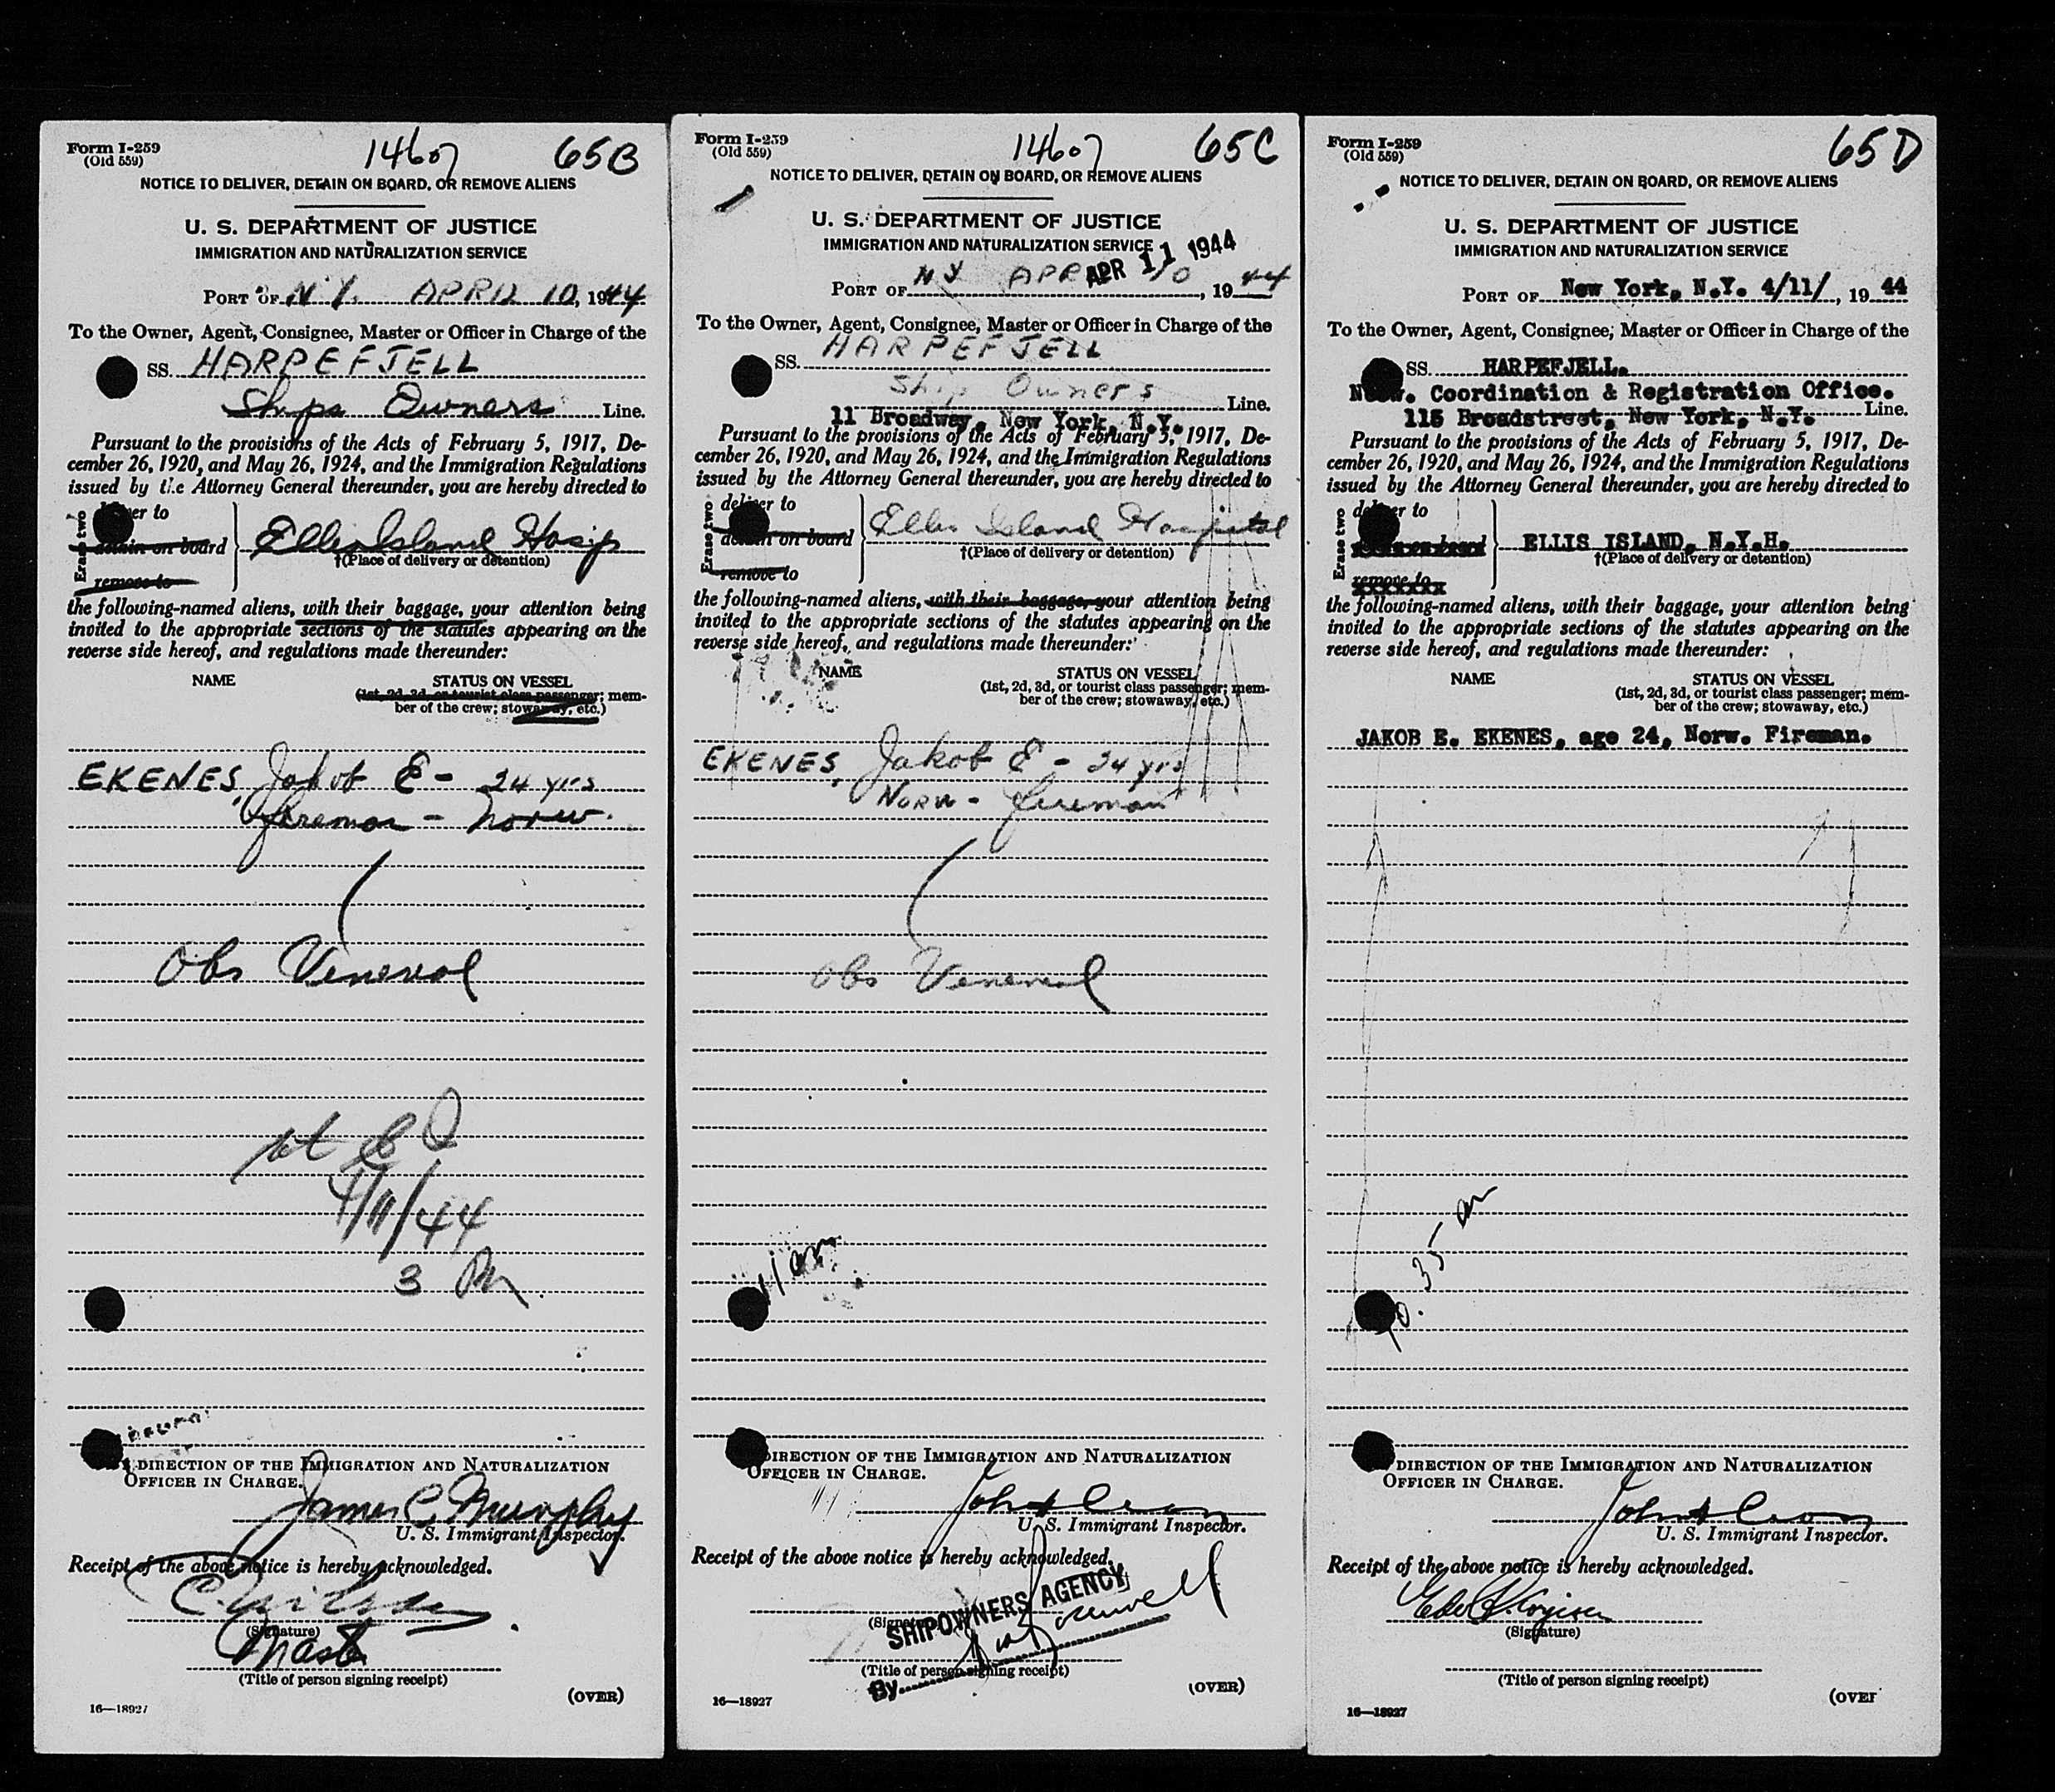 Form I-259
(Old 559)
14607
65B
NOTICE TO DELIVER, DETAIN ON BOARD, OR REMOVE ALIENS
U. S. DEPARTMENT OF JUSTICE
IMMIGRATION AND NATURALIZATION SERVICE
PORT OF N.Y. APRIL 10, 1944
To the Owner, Agent, Consignee, Master or Officer in Charge of the
SS. HARPEFJELL
Ships Owners Line.
Pursuant to the provisions of the Acts of February 5, 1917, De-
cember 26, 1920, and May 26, 1924, and the Immigration Regulations
issued by the Attorney General thereunder, you are hereby directed to
Erase two
deliver to
detain on board
remove to
Ellis Island Hosp
†(Place of delivery or detention)
the following-named aliens, with their baggage, your attention being
invited to the appropriate sections of the statutes appearing on the
reverse side hereof, and regulations made thereunder:
NAME
STATUS ON VESSEL
(1st, 2d, 3d, or tourist class passenger; mem-
ber of the crew; stowaway, etc.)
EKENES, Jakob E - 24 yrs
fireman - Norw.
Obs Venereal
4/11/44
3 PM
DIRECTION OF THE IMMIGRATION AND NATURALIZATION
OFFICER IN CHARGE.
James C. Murphy
U. S. Immigrant Inspector.
Receipt of the above notice is hereby acknowledged.
(Signature)
Master
(Title of person signing receipt)
(OVER)
16—18927
Form I-259
(Old 559)
14607
65C
NOTICE TO DELIVER, DETAIN ON BOARD, OR REMOVE ALIENS
U. S. DEPARTMENT OF JUSTICE
IMMIGRATION AND NATURALIZATION SERVICE
APR 11 1944
PORT OF NY APR 10, 1944
To the Owner, Agent, Consignee, Master or Officer in Charge of the
SS. HARPEFJELL
Ship Owners
11 Broadway, New York, N.Y. Line.
Pursuant to the provisions of the Acts of February 5, 1917, De-
cember 26, 1920, and May 26, 1924, and the Immigration Regulations
issued by the Attorney General thereunder, you are hereby directed to
Erase two
deliver to
detain on board
remove to
Ellis Island Hospital
†(Place of delivery or detention)
the following-named aliens, with their baggage, your attention being
invited to the appropriate sections of the statutes appearing on the
reverse side hereof, and regulations made thereunder:
NAME
STATUS ON VESSEL
(1st, 2d, 3d, or tourist class passenger; mem-
ber of the crew; stowaway, etc.)
EKENES, Jakob E - 24 yrs
Norw - fireman
Obs Venereal
11 am
DIRECTION OF THE IMMIGRATION AND NATURALIZATION
OFFICER IN CHARGE.
U. S. Immigrant Inspector.
Receipt of the above notice is hereby acknowledged.
(Signature)
SHIPOWNERS AGENCY
(Title of person signing receipt)
By
(OVER)
16—18927
Form I-259
(Old 559)
65D
NOTICE TO DELIVER, DETAIN ON BOARD, OR REMOVE ALIENS
U. S. DEPARTMENT OF JUSTICE
IMMIGRATION AND NATURALIZATION SERVICE
PORT OF New York, N.Y. 4/11/, 19 44
To the Owner, Agent, Consignee, Master or Officer in Charge of the
SS. HARPEFJELL.
Norw. Coordination & Registration Office.
115 Broadstreet, New York, N.Y. Line.
Pursuant to the provisions of the Acts of February 5, 1917, De-
cember 26, 1920, and May 26, 1924, and the Immigration Regulations
issued by the Attorney General thereunder, you are hereby directed to
Erase two
deliver to
remove to
ELLIS ISLAND, N.Y.H.
†(Place of delivery or detention)
the following-named aliens, with their baggage, your attention being
invited to the appropriate sections of the statutes appearing on the
reverse side hereof, and regulations made thereunder:
NAME
STATUS ON VESSEL
(1st, 2d, 3d, or tourist class passenger; mem-
ber of the crew; stowaway, etc.)
JAKOB E. EKENES, age 24, Norw. Fireman.
10.35 am
DIRECTION OF THE IMMIGRATION AND NATURALIZATION
OFFICER IN CHARGE.
U. S. Immigrant Inspector.
Receipt of the above notice is hereby acknowledged.
(Signature)
(Title of person signing receipt)
(OVER
16—18927